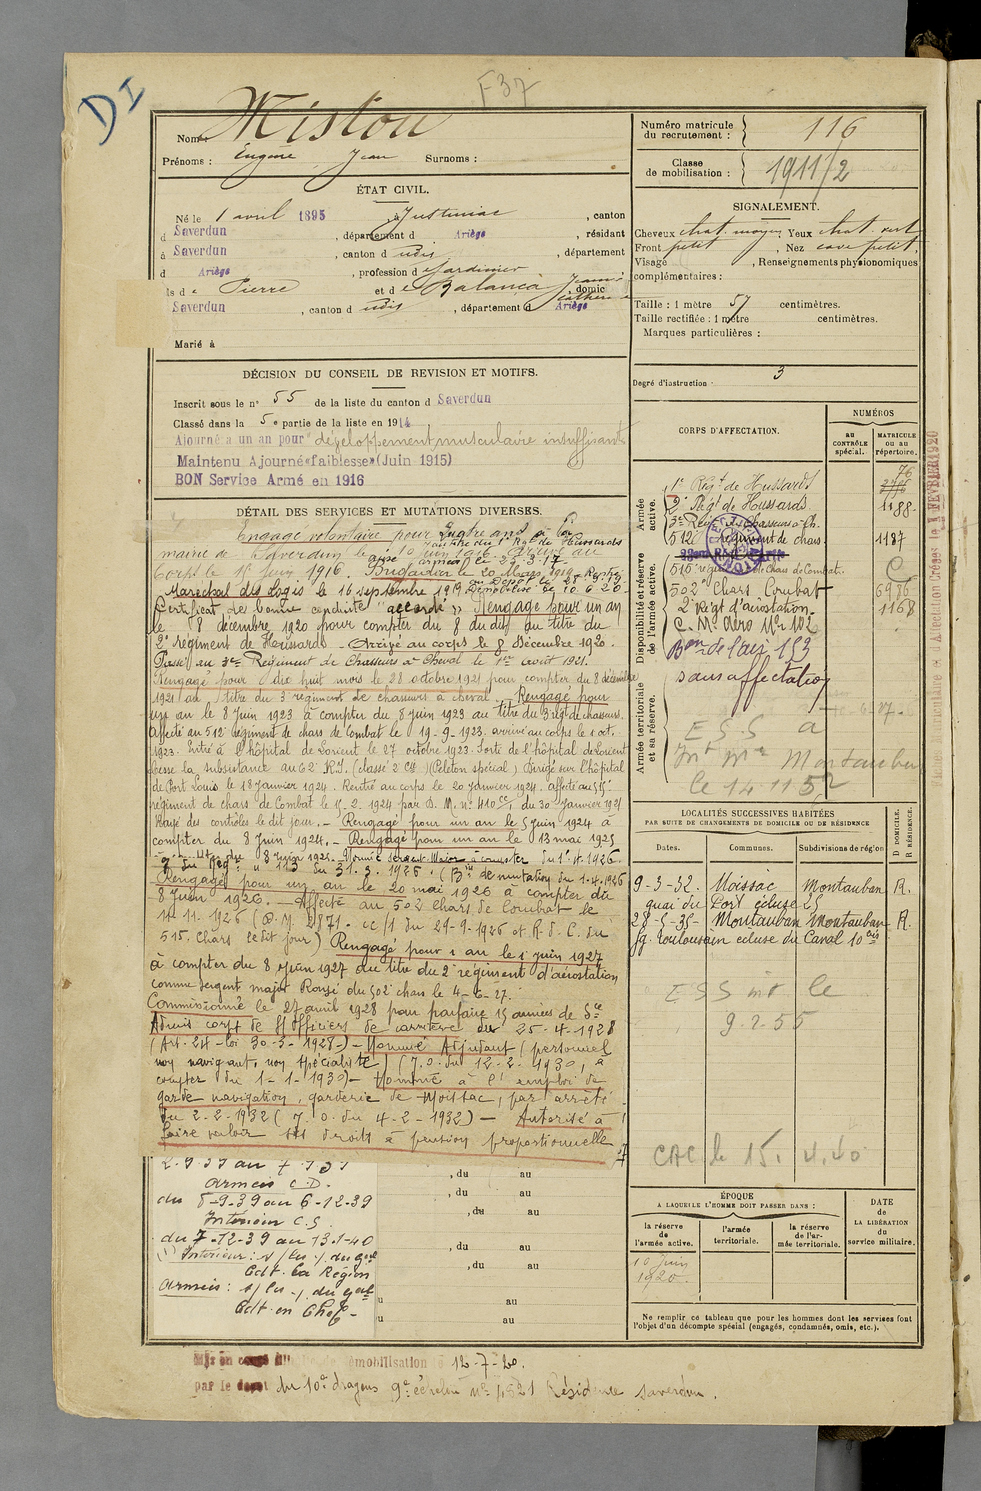 DI
F37
Nom : Mistou
Prénoms : Eugène Jean Surnoms :
ÉTAT CIVIL.
Né le 1 avril 1895, à Justiniac, canton
d Saverdun, département d Ariège, résidant
à Saverdun, canton d udis, département
d Ariège, profession d e Jardinier
ls d e Pierre et d e Balança Jeanne Catherine domic
Saverdun, canton d udis, département d Ariège
Marié à
DÉCISION DU CONSEIL DE REVISION ET MOTIFS.
Inscrit sous le n° 55 de la liste du canton d Saverdun
Classé dans la 5e partie de la liste en 1914
Ajourné a un an pour "développement musculaire insuffisant
Maintenu Ajourné «faiblesse» (Juin 1915)
BON Service Armé en 1916
DÉTAIL DES SERVICES ET MUTATIONS DIVERSES.
Engagé volontaire pour quatre ans à la
au titre du 1er Rgt de Hussards
maine de Saverdun le 10 juin 1916. Arrivé au
corps le 16 Juin 1916. Brigadier le 20 Mars 1919.
Marechal des Logis le 16 septembre 1919. Démobilisé le 10.6.20
Certificat de bonne conduite "accordé" Rengagé pour un an
le 8 décembre 1920 pour compter du 8 dudit au titre du
2e régiment de Hussards - Arrivé au corps le 8 Décembre 1920.
Passé au 3me Régiment de Chasseurs à Cheval le 1er Août 1921.
Rengagé pour dix huit mois le 28 octobre 1921 pour compter du 8 décembre
1921 au titre du 3 régiment de chasseurs à cheval - Rengagé pour
un an le 8 Juin 1923 à compter du 8 juin 1923 au titre du 3 régt de chasseurs.
Affecté au 512 régiment de chars de Combat le 19-9-1923. arrivé au corps le 1 oct.
1923. Entré à l'hôpital de Lorient le 27 octobre 1923. Sorti de l'hôpital de Lorient
Cesse la subsistance au 62 R.I. (classé 2 Cl) (Peloton spécial) Dirigé sur l'hôpital
de Port Louis le 18 Janvier 1924. Rentré au corps le 20 Janvier 1924. affecté au 515
régiment de chars de Combat le 2. 1924 par D. M. n° 410 du 30 Janvier 1924
Rayé des contrôles le dit jour. - Rengagé pour un an le 5 juin 1924 à
compter du 8 Juin 1924. - Rengagé pour un an le 13 mai 1925
8 Juin 1925. Nommé sergent Major à compter du 1.4.1926.
du 31.3.1926. (Bin de mutation du 1.4.1926
Rengagé pour un an le 20 mai 1926 à compter du
8 Juin 1926. - Affecté au 502 Chars de Combat le
11.11.1926 (D.M. 2871. cc/1 du 29-9-1926 et R.d.C. du
515. Chars le dit jour) Rengagé pour 1 an le 1 juin 1927
à compter du 8 Juin 1927 au titre du 2e régiment d'aérostation
comme sergent major Rayé du 502 chars le 4-6-27.
Commissionné le 27 avril 1928 pour parfaire 15 années de Sce
Admis corps de S/Officiers de carrière du 25-4-1928
(Art. 24 - loi 30-3-1928-) - Nommé Adjudant (personnel
non navigant, non spécialisé) (J.O. du 12-2-1930, à
compter du 1-1-1930) - Nommé à l'emploi de
garde navigation, garderie de Moissac, par arrêté
du 2-2-1932 (J.O. du 4-2-1932) - Autorisé à
faire valoir ses droits à pension proportionnelle
2.9.39 au 7.9.39
armées C.D.
du 8-9-39 au 6-12-39
Intérieur C.S.
du 7-12-39 au 13-1-40
Intérieur : s/les / du gal
Cdt. la Région
armées : s/les / du gal
Cdt. en Chef -
, du au
, du au
, du au
, du au
, du au
u au
u au
démobilisation 12-7-20.
par le depot du 10e dragons 9e échelon N° 4521 Résidence Saverdun.
Numéro matricule du recrutement : 116
Classe de mobilisation : 1911/2
SIGNALEMENT.
Cheveux chat. moyen Yeux chat. vert
Front petit, Nez cave petit
Visage, Renseignements physionomiques
complémentaires :
Taille : 1 mètre 57 centimètres.
Taille rectifiée : 1 mètre centimètres.
Marques particulières :
Degré d'instruction 3
CORPS D'AFFECTATION.
NUMÉROS
AU CONTRÔLE spécial.
MATRICULE ou au répertoire.
Armée active.
Disponibilité et réserve de l'armée active.
Armée territoriale et sa réserve.
1e Régt de Hussards 76
2e Régt de Hussards. 1188
3e Régt Chasseurs à Ch.
512 régiment de chars. 1187
515 régt de Chars de Combat.
502e Chars Combat 6936
2e Régt d'aérostation. 1168
C. Mo Aéro N° 102
Bon de l'air 153
sans affectation
ESS a
Montauban
le 14 11 52
LOCALITÉS SUCCESSIVES HABITÉES
PAR SUITE DE CHANGEMENTS DE DOMICILE OU DE RÉSIDENCE
D DOMICILE.
R RÉSIDENCE.
Dates. Communes. Subdivisions de région
9-3-32. Moissac Montauban R.
quai du Port écluse 25
28-5-35- Montauban Montauban R.
fg. toulousain écluse du Canal 10 bis
ESS mt le
9-2-55
CAC le 15. 4.40
ÉPOQUE
A LAQUELLE L'HOMME DOIT PASSER DANS :
la réserve de l'armée active.
l'armée territoriale.
la réserve de l'armée territoriale.
DATE de LA LIBÉRATION du service militaire.
10 juin 1920.
Ne remplir ce tableau que pour les hommes dont les services font
l'objet d'un décompte spécial (engagés, condamnés, omis, etc.).